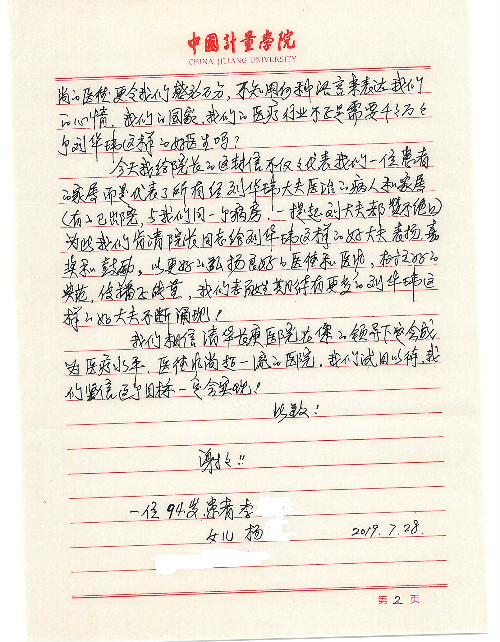 中国计量学院
CHINA JILIANG UNIVERSITY
尚的医德更令我们感动万分，不知用何种语言来表达我们
的心情。我们的国家，我们的医疗行业不正是需要千千万万
个刘华玮这样的好医生吗？
今天我给院长的这封信不仅仅代表我们一位患者
的家属而是代表了所有经刘华玮大夫医治的病人和家属
（有的已邮完，与我们同一个病房，一提起刘大夫都赞不绝口）
为此我们肯请院长同志给刘华玮这样的好大夫表扬、嘉
奖和鼓励。以更好的弘扬良好的医德和医风，树立好的
典范，传播正能量，我们患者期待有更多的刘华玮这
样的好大夫不断涌现！
我们相信清华长庚医院在您的领导下定会成
为医疗水平、医德高尚超一流的医院，我们拭目以待，我
们坚信这个目标一定会实现！
此致！
谢谢!!
一位94岁患者李
女儿 杨 2019.7.28.
第 2 页